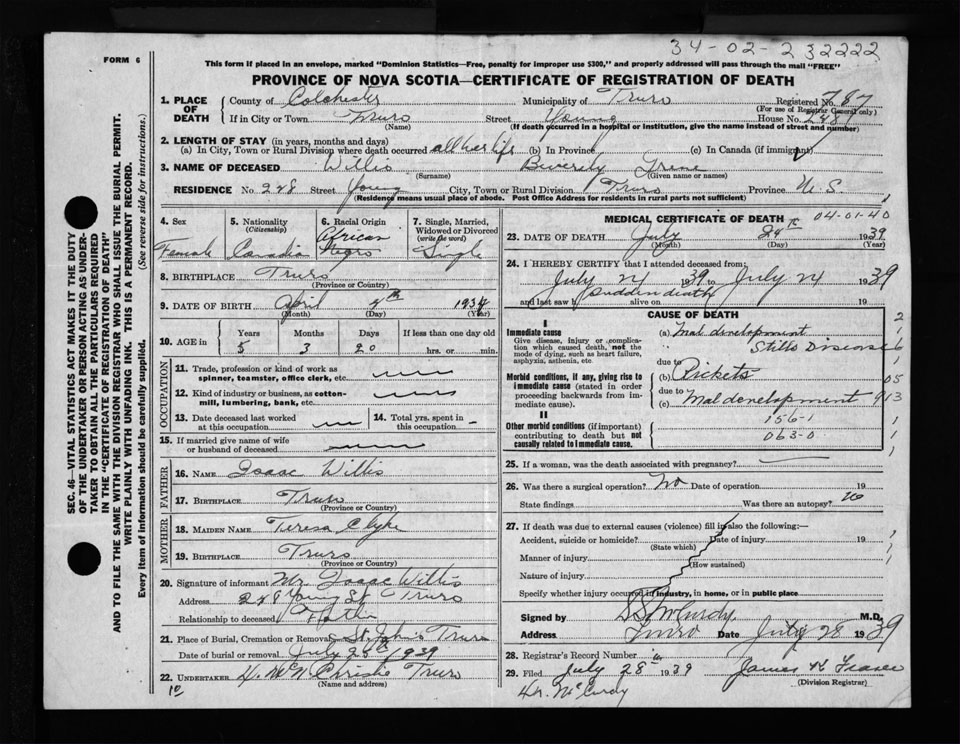 34-02-232222
FORM 6
This form if placed in an envelope, marked "Dominion Statistics—Free, penalty for improper use $300," and properly addressed will pass through the mail "FREE"
PROVINCE OF NOVA SCOTIA—CERTIFICATE OF REGISTRATION OF DEATH
SEC. 46—VITAL STATISTICS ACT MAKES IT THE DUTY
OF THE UNDERTAKER OR PERSON ACTING AS UNDER-
TAKER TO OBTAIN ALL THE PARTICULARS REQUIRED
IN THE "CERTIFICATE OF REGISTRATION OF DEATH"
AND TO FILE THE SAME WITH THE DIVISION REGISTRAR WHO SHALL ISSUE THE BURIAL PERMIT.
WRITE PLAINLY WITH UNFADING INK. THIS IS A PERMANENT RECORD.
Every item of information should be carefully supplied. (See reverse side for instructions.)
1. PLACE OF DEATH County of Colchester Municipality of Truro Registered No. 787
(For use of Registrar General only)
If in City or Town Truro Street Young House No. 248
(Name) (If death occurred in a hospital or institution, give the name instead of street and number)
2. LENGTH OF STAY (in years, months and days)
(a) In City, Town or Rural Division where death occurred all her life (b) In Province (c) In Canada (if immigrant)
3. NAME OF DECEASED Willis Beverly Irene
(Surname) (Given name or names)
RESIDENCE No. 248 Street Young City, Town or Rural Division Truro Province N.S.
(Residence means usual place of abode. Post Office Address for residents in rural parts not sufficient)
4. Sex Female
5. Nationality (Citizenship) Canadian
6. Racial Origin African Negro
7. Single, Married, Widowed or Divorced (write the word) Single
8. BIRTHPLACE Truro
(Province or Country)
9. DATE OF BIRTH April 4th 1934
(Month) (Day) (Year)
10. AGE in Years 5 Months 3 Days 20 If less than one day old hrs. or min.
OCCUPATION
11. Trade, profession or kind of work as spinner, teamster, office clerk, etc.
12. Kind of industry or business, as cotton-mill, lumbering, bank, etc.
13. Date deceased last worked at this occupation
14. Total yrs. spent in this occupation
15. If married give name of wife or husband of deceased
FATHER
16. NAME Isaac Willis
17. BIRTHPLACE Truro
(Province or Country)
MOTHER
18. MAIDEN NAME Teresa Clyke
19. BIRTHPLACE Truro
(Province or Country)
20. Signature of informant Mr. Isaac Willis
Address 248 Young St Truro
Relationship to deceased Father
21. Place of Burial, Cremation or Removal St. John's Truro
Date of burial or removal July 28th 1939
22. UNDERTAKER Christie Truro
(Name and address)
10
MEDICAL CERTIFICATE OF DEATH 04-01-40
23. DATE OF DEATH July 24th 1939
(Month) (Day) (Year)
24. I HEREBY CERTIFY that I attended deceased from:
July 24 1939 to July 24 1939
and last saw h alive on Sudden death 19
CAUSE OF DEATH
I
Immediate cause
Give disease, injury or complication which caused death, not the mode of dying, such as heart failure, asphyxia, asthenia, etc.
(a) Mal development
Stills Disease
due to
Morbid conditions, if any, giving rise to immediate cause (stated in order proceeding backwards from immediate cause).
(b) Rickets
due to
(c) Maldevelopment
II
Other morbid conditions (if important) contributing to death but not causally related to immediate cause.
156-1
063-0
25. If a woman, was the death associated with pregnancy?
26. Was there a surgical operation? No Date of operation 19
State findings Was there an autopsy? No
27. If death was due to external causes (violence) fill in also the following:—
Accident, suicide or homicide? Date of injury 19
(State which)
Manner of injury
(How sustained)
Nature of injury
Specify whether injury occurred in industry, in home, or in public place
Signed by McCurdy, M.D.
Address Truro Date July 28 1939
28. Registrar's Record Number
29. Filed July 28th 1939 James K Fraser
(Division Registrar)
Dr. McCurdy